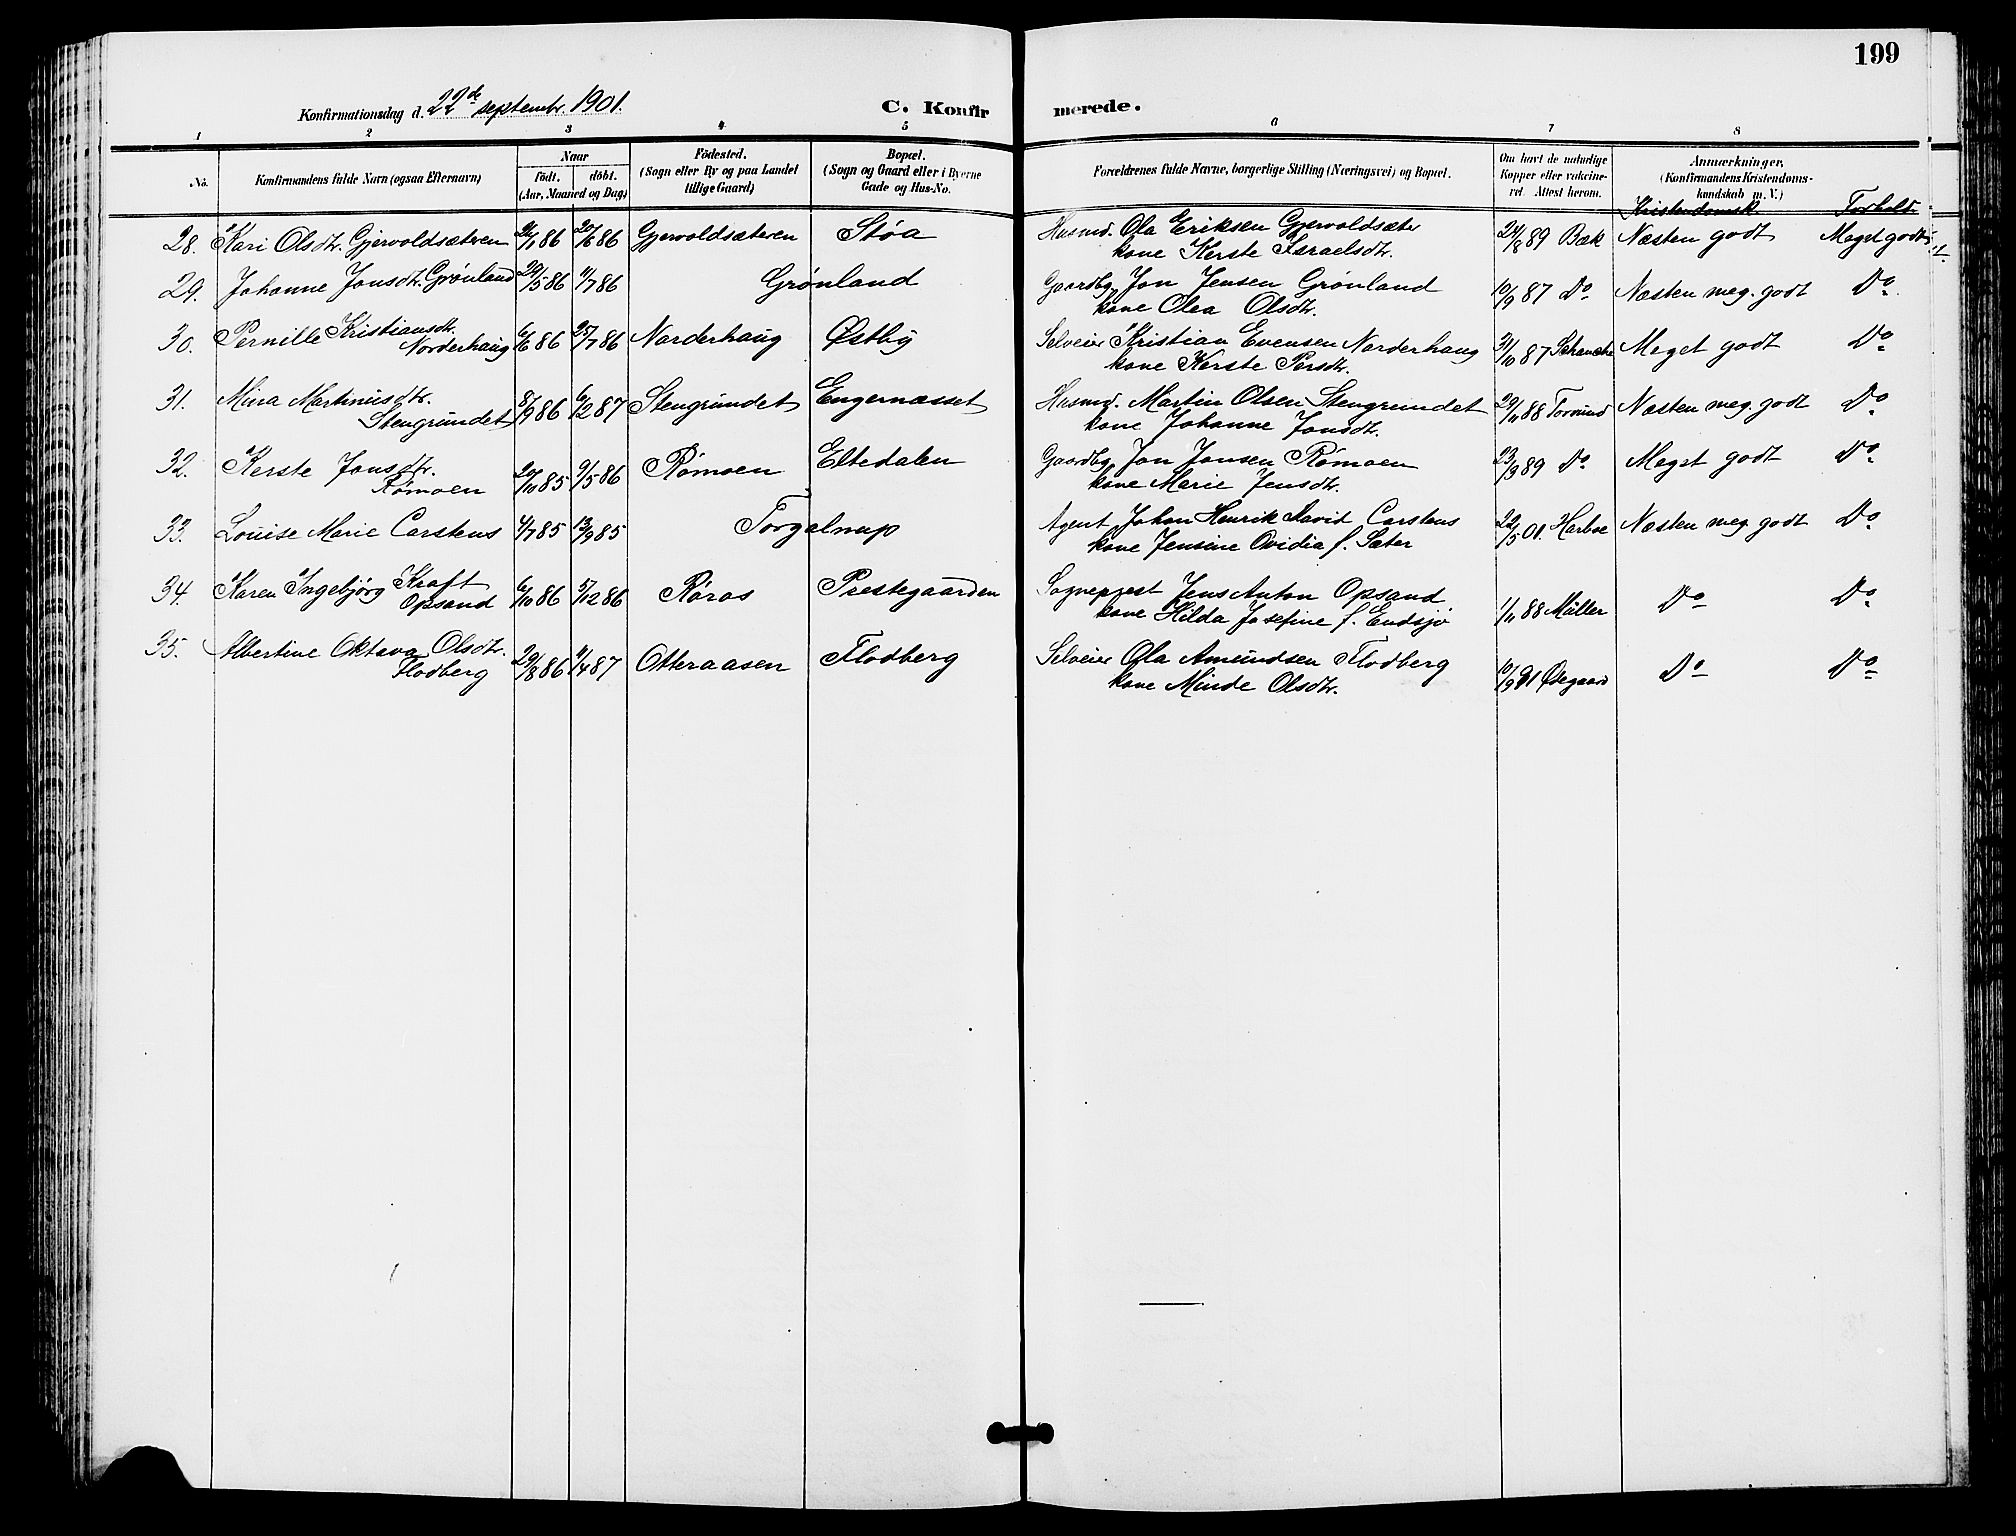 199
Konfirmationsdag d. 22de septembr. 1901.
C. Konfirmerede.
1 2 3 4 5 6 7 8
No.
Konfirmandens fulde Navn (ogsaa Efternavn)
Naar
födt. döbt.
(Aar, Maaned og Dag)
Födested.
(Sogn eller By og paa Landet
tillige Gaard)
Bopæl.
(Sogn og Gaard eller i Byerne
Gade og Hus-No.
Forældrenes fulde Navne, borgerlige Stilling (Næringsvei) og Bopæl.
Om havt de naturlige
Kopper eller vakcine-
ret. Attest herom.
Anmærkninger,
(Konfirmandens Kristendoms-
kundskab m. V.)
Kristendomsk Forhold
28. Kari Olsdtr. Gjervoldsæteren 86 20/6 86 Gjervoldsæteren Støa Husmd. Ola Eriksen Gjervoldsæter 24/8 89 Bæk Næsten godt Meget godt
kone Kerste Israelsdtr.
29. Johanne Jonsdtr. Grønland 29/5 86 11/7 86 Grønland Gaardbg. Jon Jensen Grönland 10/9 87 Do Næsten meg. godt Do
kone Olea Olsdtr.
30. Pernille Kristiansdtr. Norderhaug 6/6 86 25/7 86 Norderhaug Østby Selveier Kristian Evensen Norderhaug 31/10 87 Schanche Meget godt Do
kone Kerste Persdtr.
31. Mina Martinusdtr. Stengrundet 8/9 86 6/2 87 Stengrundet Engernæsset Husmd. Martin Olsen Stengrundet 29/11 88 Tornmd Næsten meg. godt Do
kone Johanne Jonsdtr.
32. Kerste Jonsdtr. Rømoen 20/10 85 9/5 86 Rømoen Eltedalen Gaardbg. Jon Jonsen Rømoen 23/9 89 Do Meget godt Do
kone Marie Jensdtr.
33. Louise Marie Carstens 4/7 85 13/9 85 Torgalmup Agent Johan Henrik David Carstens 22/5 01. Harboe Næsten meg. godt Do
kone Jensine Ovidia f. Sæter
34. Karen Ingebjørg Kraft Opsand 6/10 86 5/12 86 Røros Prestegaarden Sogneprest Jens Anton Opsand 1/11 88 Müller Do Do
kone Hilda Josefine f. Endsjø
35. Albertine Oktava Olsdtr. Flodberg 29/8 86 11/4 87 Otteraasen Flodberg Selveier Ola Amundsen Flodberg 10/9 91 Ødegaard Do Do
kone Minde Olsdtr.